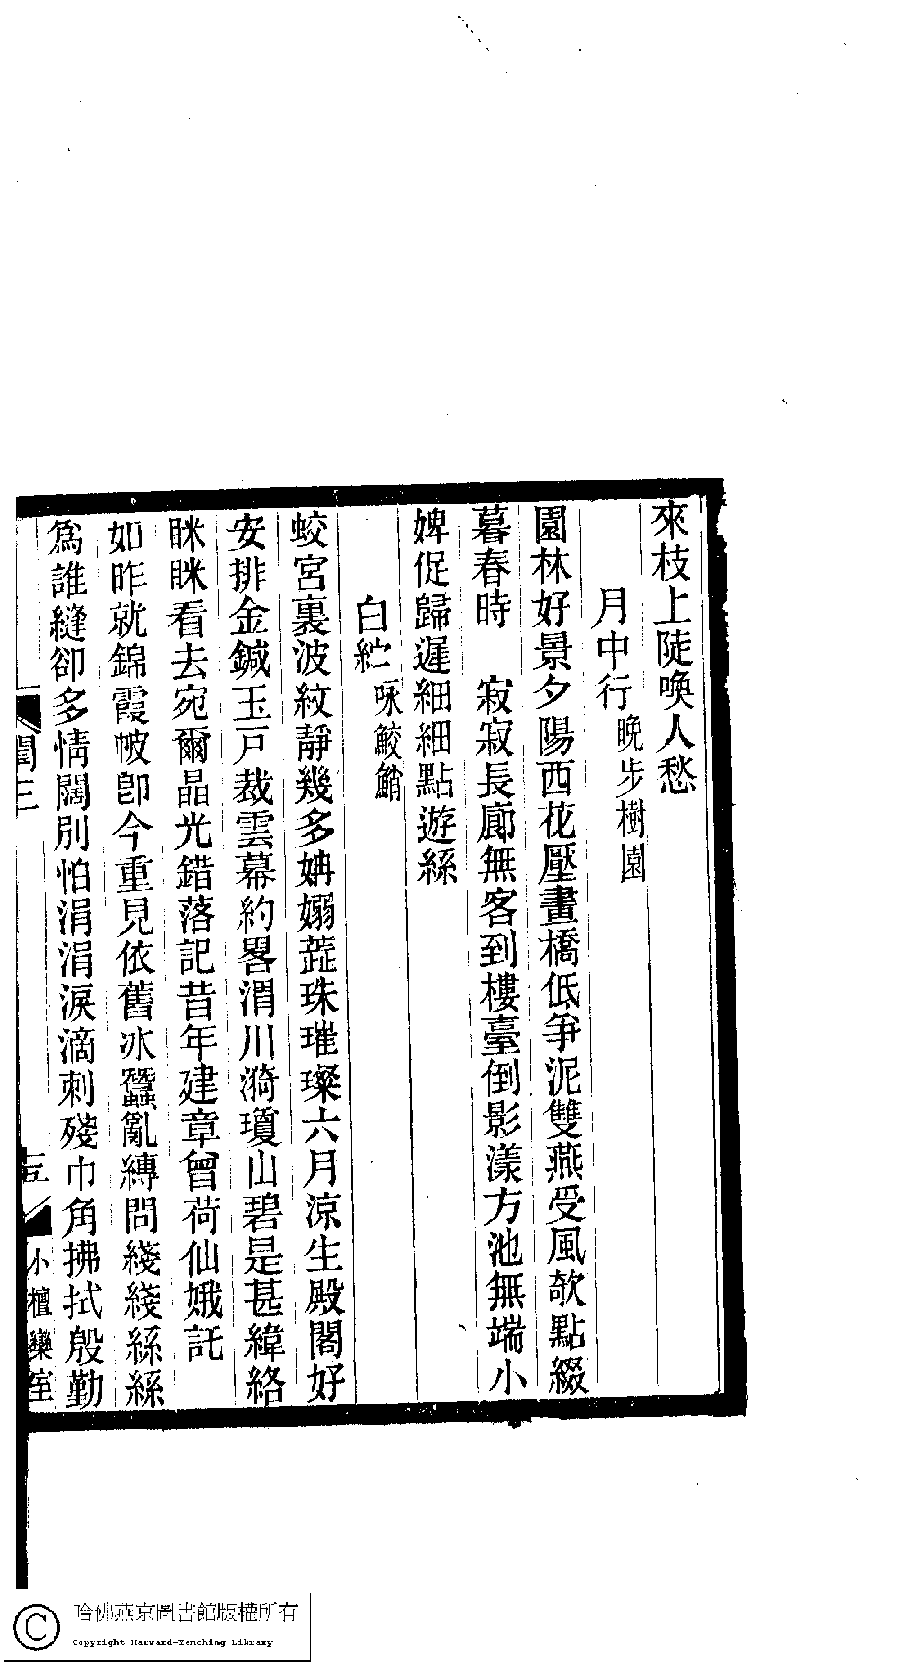 來枝上陡喚人愁
月中行晚步樹園
園林好景夕陽西花壓畫橋低爭泥雙燕受風欹點綴
暮春時　寂寂長廊無客到樓臺倒影漾方池無端小
婢促歸遲細細點遊絲
白紵詠鮫鮹
蛟宮裏波紋靜幾多姌嫋蕋珠璀璨六月涼生殿閣好
安排金鍼玉戸裁雲幕約畧渭川漪瓊山碧是甚緯絡
眯眯看去宛爾晶光錯落記昔年建章曾荷仙娥託
如昨就錦霞帔卽今重見依舊冰蠶亂縛問綫綫絲絲
爲誰縫卻多情闊別怕涓涓淚滴刺殘巾角拂拭殷勤
閏三
十五
小檀欒室
哈佛燕京圖書館版權所有
Copyright Harvard-Yenching Library